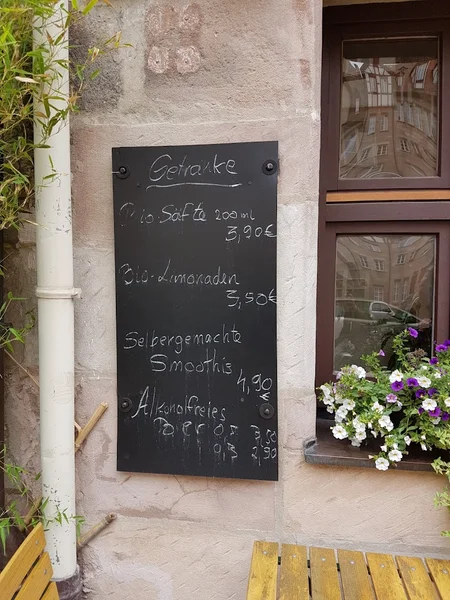 Getränke
Bio-Säfte 200ml
3,90€
Bio-Limonaden
3,50€
Selbergemachte
Smoothis
4,90
€
Alkoholfreies
Bier 0,5 3,50
0,3 2,90